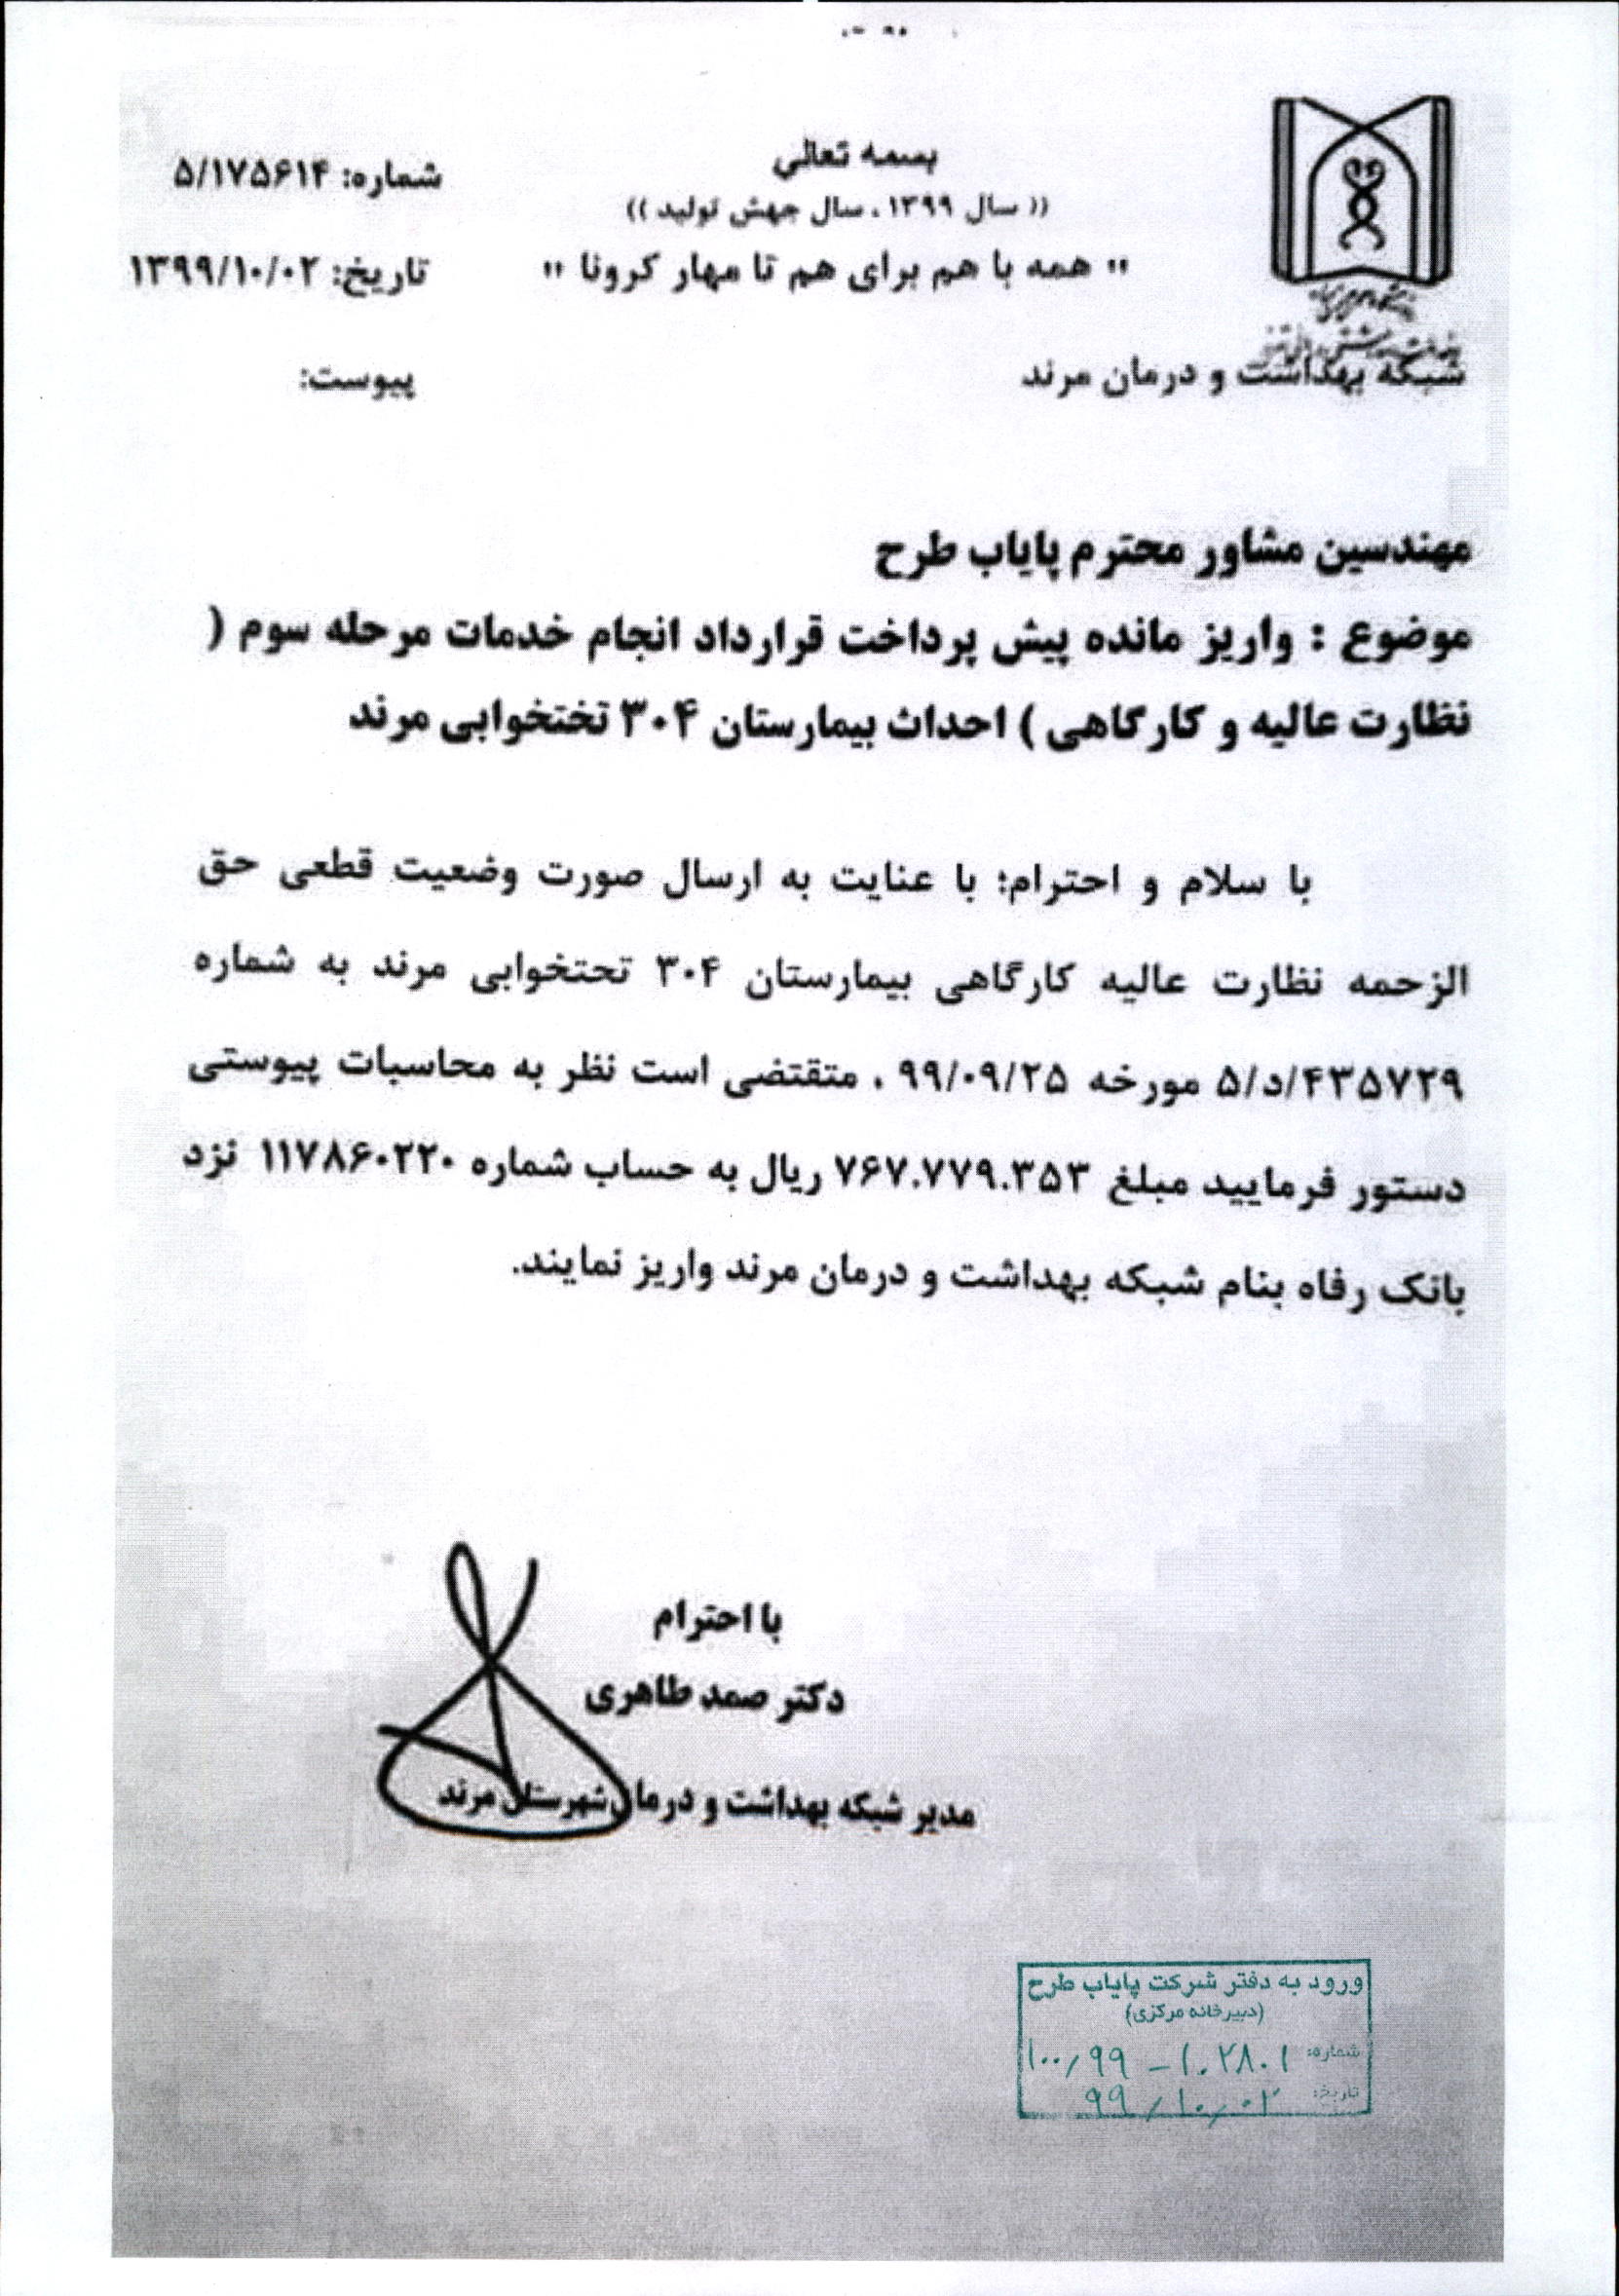 بسمه تعالی
(( سال ۱۳۹۹ ، سال جهش تولید ))
" همه با هم برای هم تا مهار کرونا "
شماره: ۵/۱۷۵۶۱۴
تاریخ: ۱۳۹۹/۱۰/۰۲
پیوست:
شبکه بهداشت و درمان مرند
مهندسین مشاور محترم پایاب طرح
موضوع : واریز مانده پیش پرداخت قرارداد انجام خدمات مرحله سوم (
نظارت عالیه و کارگاهی ) احداث بیمارستان ۳۰۴ تختخوابی مرند
با سلام و احترام؛ با عنایت به ارسال صورت وضعیت قطعی حق
الزحمه نظارت عالیه کارگاهی بیمارستان ۳۰۴ تحتخوابی مرند به شماره
۵/د/۴۳۵۷۲۹ مورخه ۹۹/۰۹/۲۵ ، متقتضی است نظر به محاسبات پیوستی
دستور فرمایید مبلغ ۷۶۷.۷۷۹.۳۵۳ ریال به حساب شماره ۱۱۷۸۶۰۲۲۰ نزد
بانک رفاه بنام شبکه بهداشت و درمان مرند واریز نمایند.
با احترام
دکتر صمد طاهری
مدیر شبکه بهداشت و درمان شهرستان مرند
ورود به دفتر شرکت پایاب طرح
(دبیرخانه مرکزی)
شماره: ۱۰۰٫۹۹ - ۱۰۲۸۰۱
تاریخ: ۹۹/۱۰/۰۲